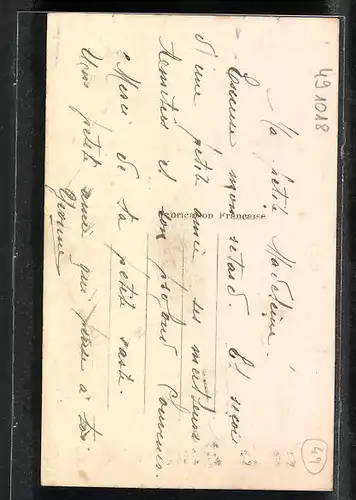 Ma petite Madeleine.
Excuse mon retard. Et recois
d'une petite amie ses meilleures
Amitiés et son profond Souvenir.
Merci de ta petite carte.
Une petite amie qui pense à toi
Yvonne
Fabrication Française
491018
49